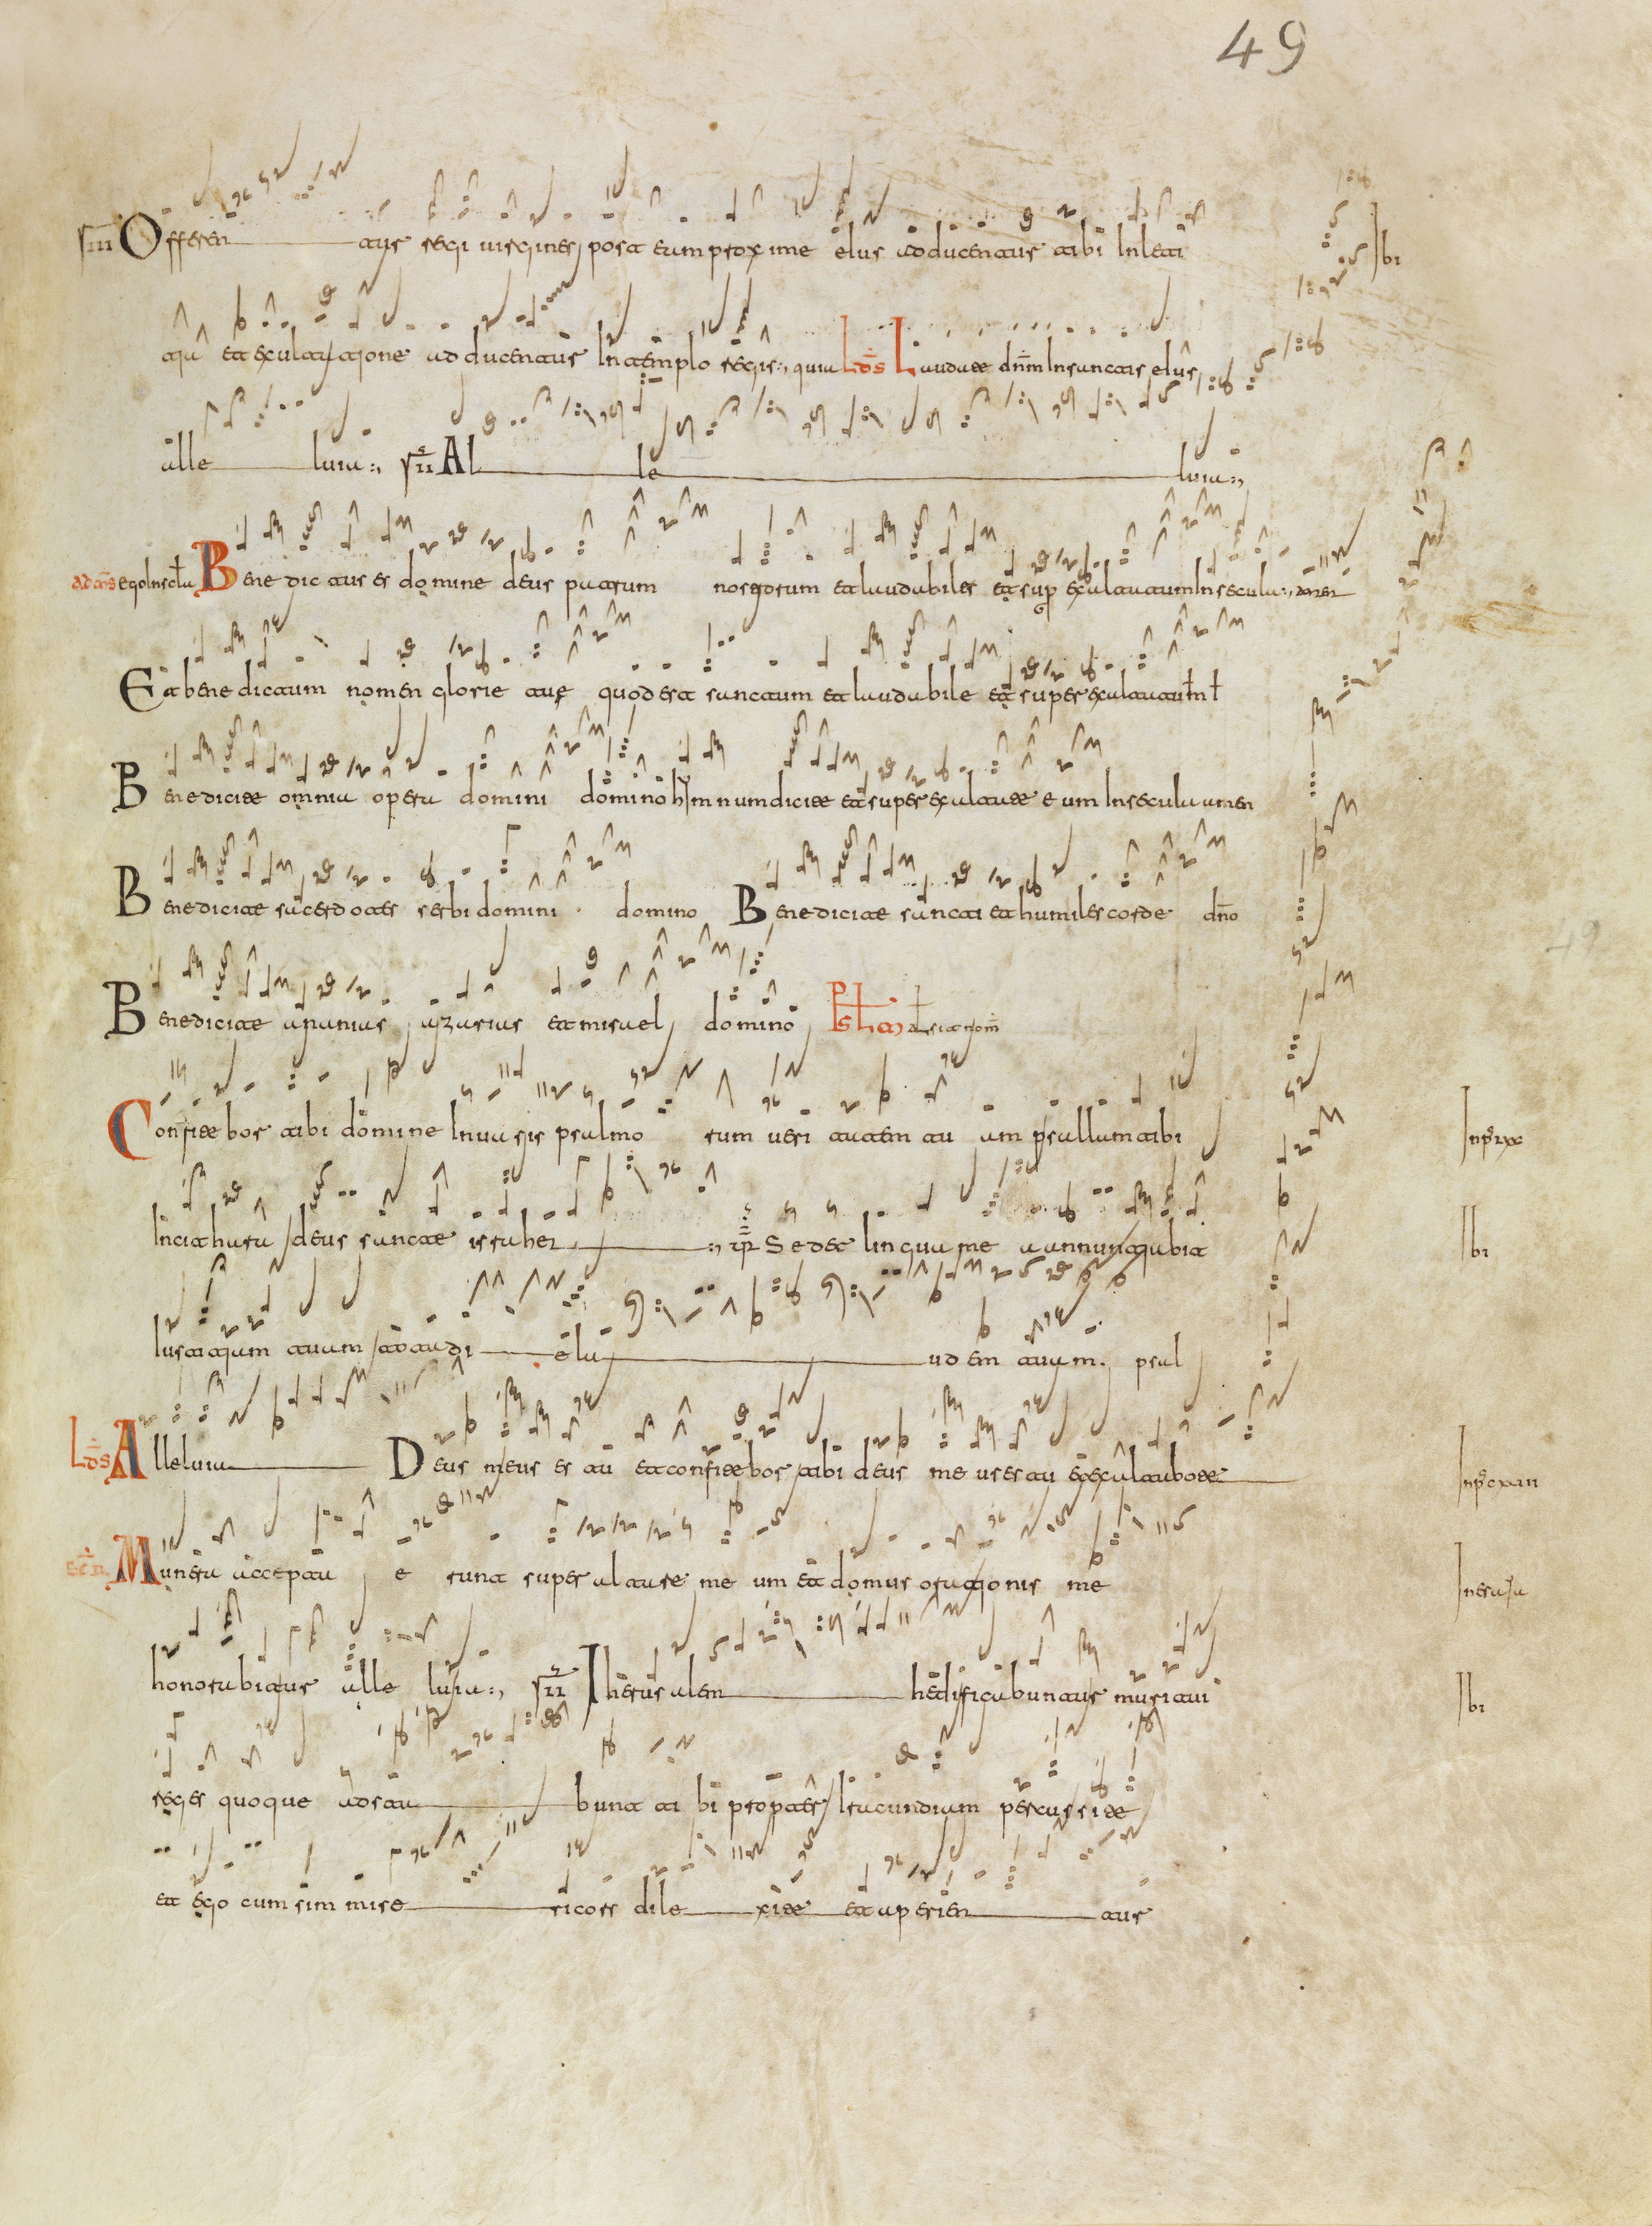 49
SIII Offeren tur regi uirgines post eum proxime eius adducentur tibi In leti
tia et exultatione adducentur In templo regis : quia LdS Laudate dnm In sanctis eius
alle luia : SII Al le luia :
adcts ego Inscla Benedictus es domine deus patrum nostrorum et laudabiles et sup exaltatum In secula : amen
Et benedictum nomen glorie tue quod est sanctum et laudabile et superexaltatum In
Benedicite omnia opera domini domino hymnum dicite et superexaltate eum In secula amen
Benedicite sacerdotes serbi domini domino Benedicite sancti et humiles corde dno
Benedicite ananias azarias et misael domino
Confitebor tibi domine In uasis psalmo rum ueri tatem tu am psallam tibi
In cithara deus sancte israhel : Sed et lingua mea annuntiabit
Iustitiam tuam tota di e la udem tuam psal
LdS Alleluia Deus meus es tu et confitebor tibi deus meus es tu et exaltabo te
Munera accepta e runt super altare me um et domus orationis me
honorabitur alle luia : SII Iherusalem hedificabuntur muri tui
reges quoque adora bunt ti bi propter Iracundiam percussi te
et ego cum sim mise ricors dile xi te et aperien tur
Ibi
In ps lxx
Ibi
In ps cxvii
In esaia
Ibi